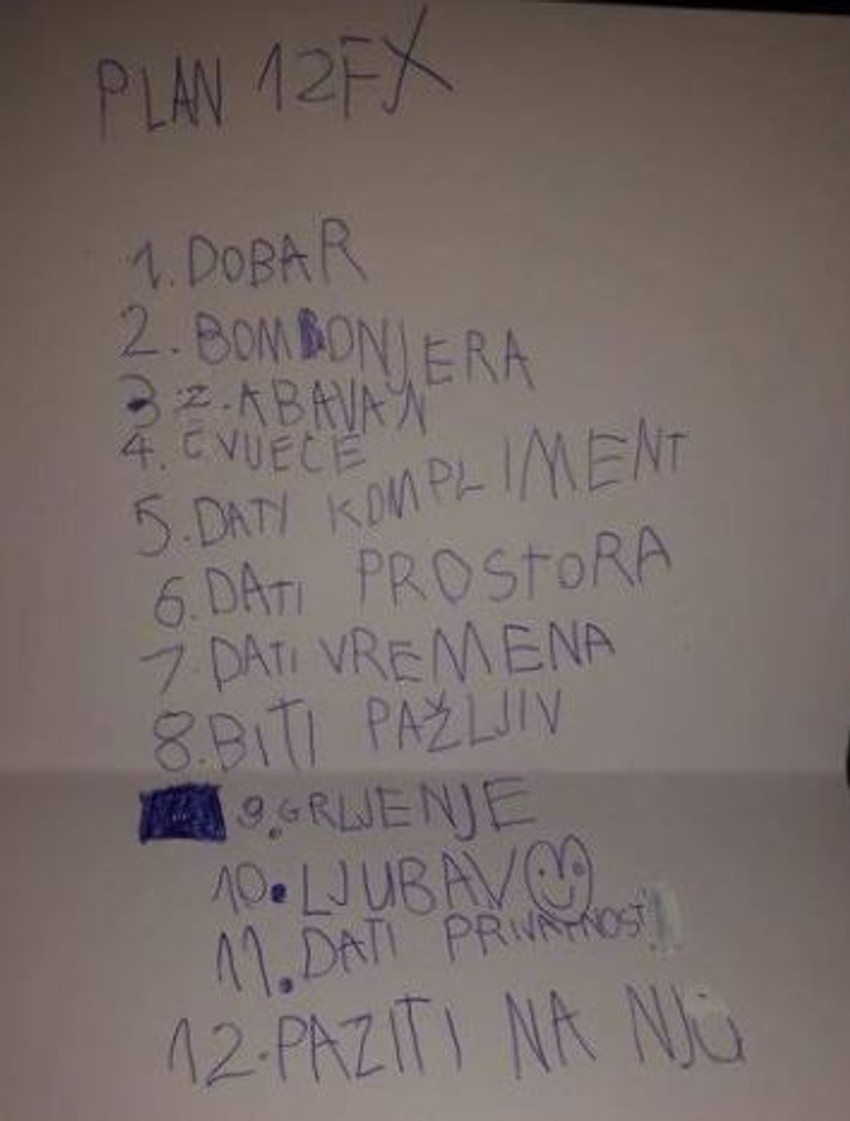 PLAN 12FX
1. DOBAR
2. BOMBONJERA
3 Z.ABAVAN
4. CVIJEĆE
5. DATI KOMPLIMENT
6. DATI PROSTORA
7. DATI VREMENA
8. BITI PAŽLJIV
9. GRLJENJE
10. LJUBAV
11. DATI PRIVATNOST
12. PAZITI NA NJU